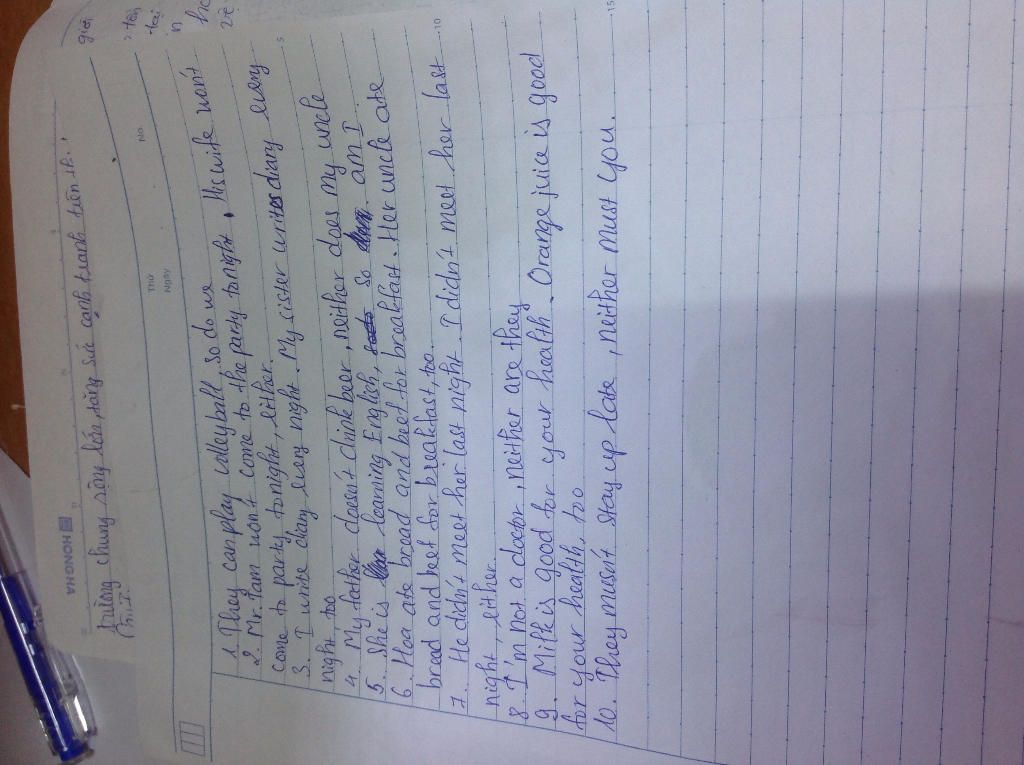 HONG HA
trường chung sống hòa, tăng sức cạnh tranh
Thứ
Ngày
No.
1. They can play volleyball, so do we
2. Mr. Tam won't come to the party tonight. His wife won't
come to party tonight, either.
3. I write diary every night. My sister writes diary every
night, too
4. My father doesn't drink beer, neither does my uncle
5. She is learning English, so am I
6. Hoa ate bread and beef for breakfast. Her uncle ate
bread and beef for breakfast, too.
7. He didn't meet her last night. I didn't meet her last
night, either.
8. I'm not a doctor, neither are they
9. Milk is good for your health. Orange juice is good
for your health, too
10. They musn't stay up late, neither must you.
5
10
15